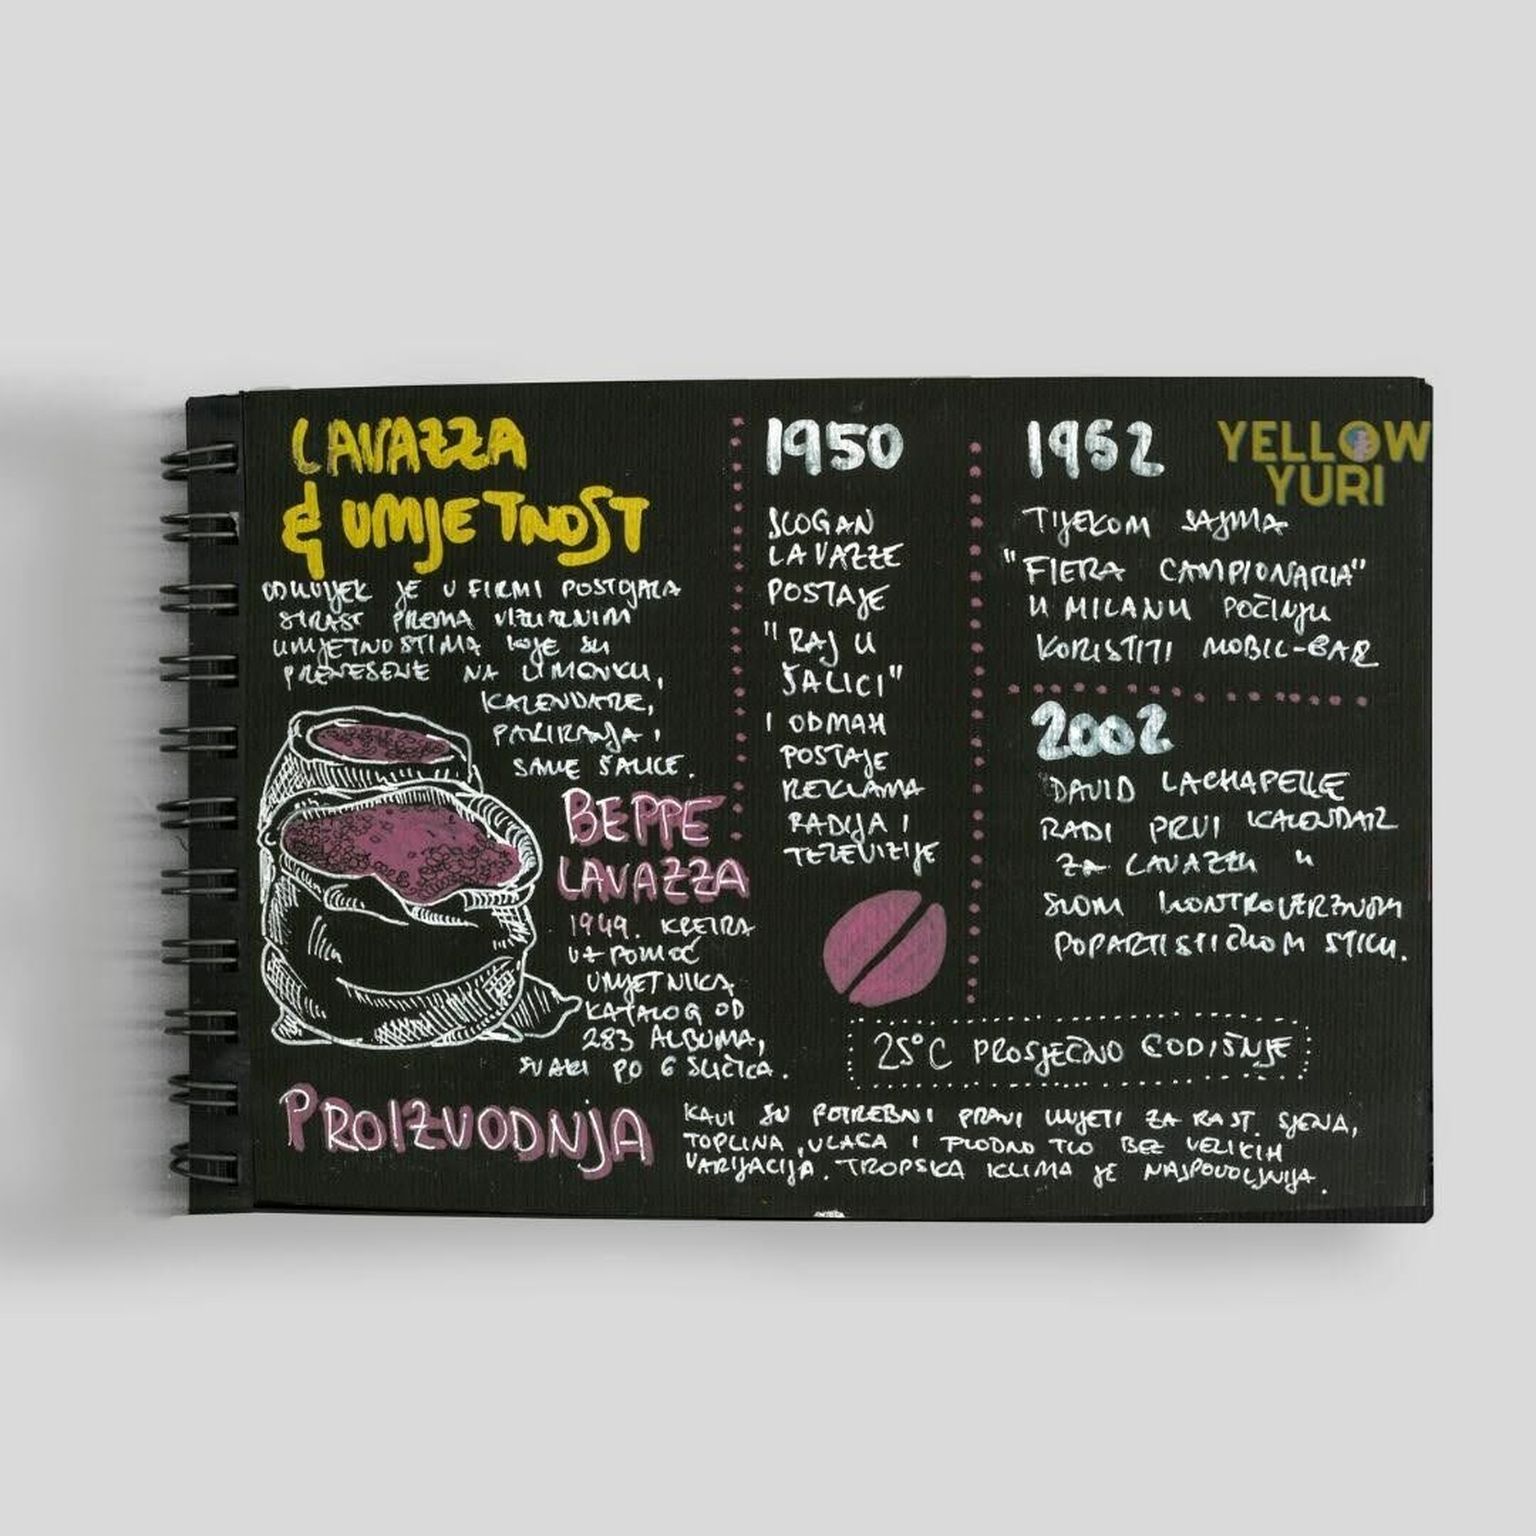 LAVAZZA
& UMJETNOST
ODUVIJEK JE U FIRMI POSTOJALA
STRAST PREMA VIZUALNIM
UMJETNOSTIMA KOJE SU
PRENESENE NA LIMENKU,
KALENDARE,
PAKIRANJA I
SAME ŠALICE.
BEPPE
LAVAZZA
1949. KREIRA
UZ POMOĆ
UMJETNIKA
KATALOG OD
283 ALBUMA,
SVAKI PO 6 SLIČICA.
1950
SLOGAN
LAVAZZE
POSTAJE
"RAJ U
ŠALICI"
I ODMAH
POSTAJE
REKLAMA
RADIJA I
TELEVIZIJE
1952
TIJEKOM SAJMA
"FIERA CAMPIONARIA"
U MILANU POČINJU
KORISTITI MOBIL-BAR
YELLOW
YURI
2002
DAVID LACHAPELLE
RADI PRVI KALENDAR
ZA LAVAZZU U
SVOM KONTROVERZNOM
POPARTISTIČKOM STILU.
25°C PROSJEČNO GODIŠNJE
PROIZVODNJA
KAVI SU POTREBNI PRAVI UVJETI ZA RAST. SJENA,
TOPLINA, VLAGA I PLODNO TLO BEZ VELIKIH
VARIJACIJA. TROPSKA KLIMA JE NAJPOVOLJNIJA.